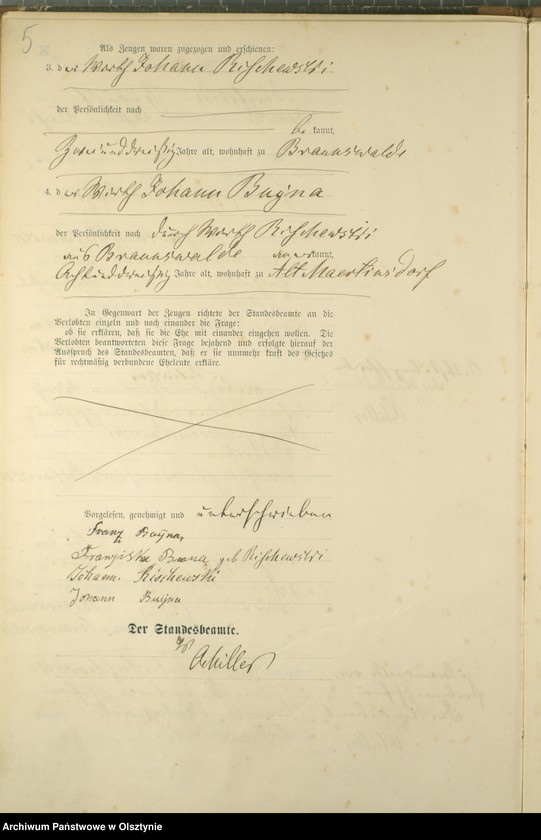 5
Als Zeugen waren zugezogen und erschienen:
3. der Wirth Johann Rischewski
der Persönlichkeit nach
be kannt,
Zweiunddreißig Jahre alt, wohnhaft zu Braunswalde
4. der Wirth Johann Buyna
der Persönlichkeit nach durch Wirth Rischewski
aus Braunswalde aner kannt,
Achtunddreißig Jahre alt, wohnhaft zu Alt Maertinsdorf
In Gegenwart der Zeugen richtete der Standesbeamte an die
Verlobten einzeln und nach einander die Frage:
ob sie erklären, daß sie die Ehe mit einander eingehen wollen. Die
Verlobten beantworteten diese Frage bejahend und erfolgte hierauf der
Ausspruch des Standesbeamten, daß er sie nunmehr kraft des Gesetzes
für rechtmäßig verbundene Eheleute erkläre.
Vorgelesen, genehmigt und unterschrieben
Franz Buyna,
Franziska Buyna geb Rischewski
Johann. Rischewski
Johann Buyna
Der Standesbeamte.
Achiller
Archiwum Państwowe w Olsztynie